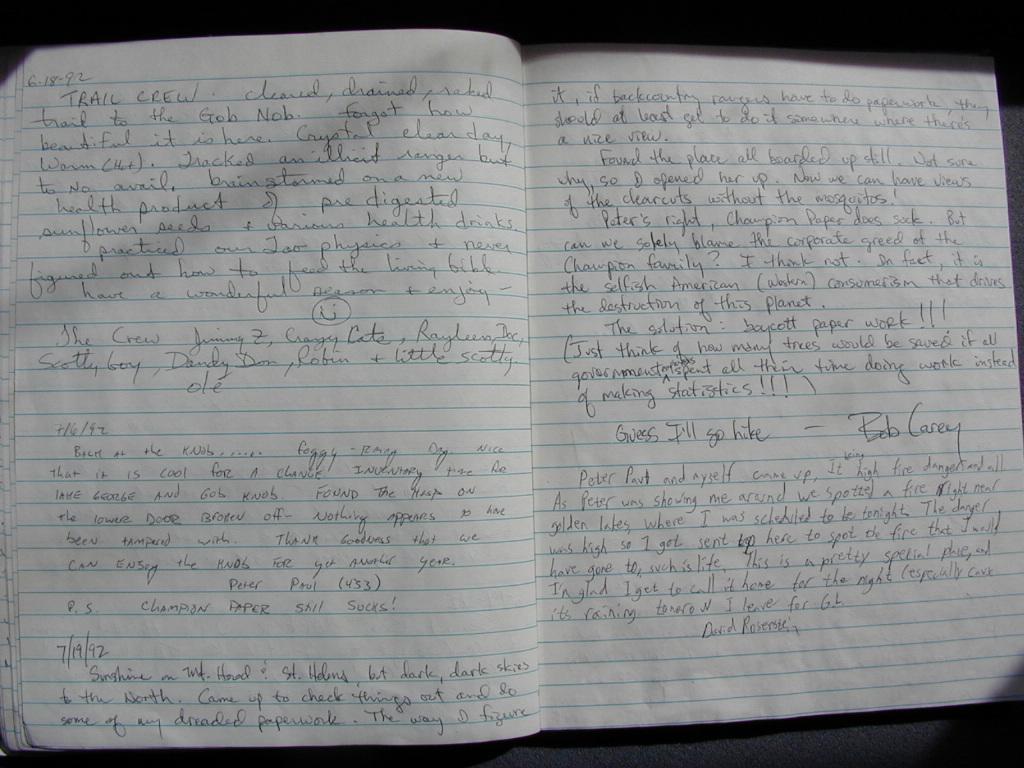 6-18-92
TRAIL CREW. cleared, drained, raked
trail to the Gob Nob. Forgot how
beautiful it is here. Crystal clear day,
Warm (Hot). Tracked an illicit ranger but
to no avail. brainstormed on a new
health product of pre digested
sunflower seeds + various health drinks.
practiced our Tao physics + never
figured out how to feed the living bible.
have a wonderful season + enjoy -
The Crew Jimmy Z, Crazy Cate, Rayleen, Doc,
Scotty boy, Dandy Don, Robin + little scotty
olé
7/6/92
BACK AT the KNOB...... Foggy - Rainy Day Nice
that it is cool FOR A CHANGE. INVENTORY time
LAKE GEORGE AND GOB KNOB. FOUND THE HASP ON
the lower DOOR BROKEN OFF - Nothing APPEARS to have
been tampered with. THANK Goodness that we
CAN ENJOY the KNOB FOR yet ANOTHER YEAR.
Peter Paul (433)
P.S. CHAMPION PAPER STILL SUCKS!
7/19/92
Sunshine on Mt. Hood & St. Helens, but dark, dark skies
to the North. Came up to check things out and do
some of my dreaded paperwork. The way I figure
it, if backcountry rangers have to do paperwork, they
should at least get to do it somewhere where there's
a nice view.
Found the place all boarded up still. Not sure
why, so I opened her up. Now we can have views
of the clearcuts without the mosquitos!
Peter's right, Champion Paper does suck. But
can we solely blame the corporate greed of the
Champion family? I think not. In fact, it is
the selfish American (Western) consumerism that drives
the destruction of this planet.
The solution: boycott paper work!!!
(Just think of how many trees would be saved if all
government spent all their time doing work instead
of making statistics!!!)
Guess I'll go hike — Bob Carey
Peter Paul and myself came up, It being high fire danger and all
As Peter was showing me around we spotted a fire right near
golden lakes, where I was scheduled to be tonight. The danger
was high so I got sent up here to spot the fire that I would
have gone to, such is life. This is a pretty special place, and
I'm glad I get to call it home for the night (especially cause
its raining tomorow I leave for G.L.
David